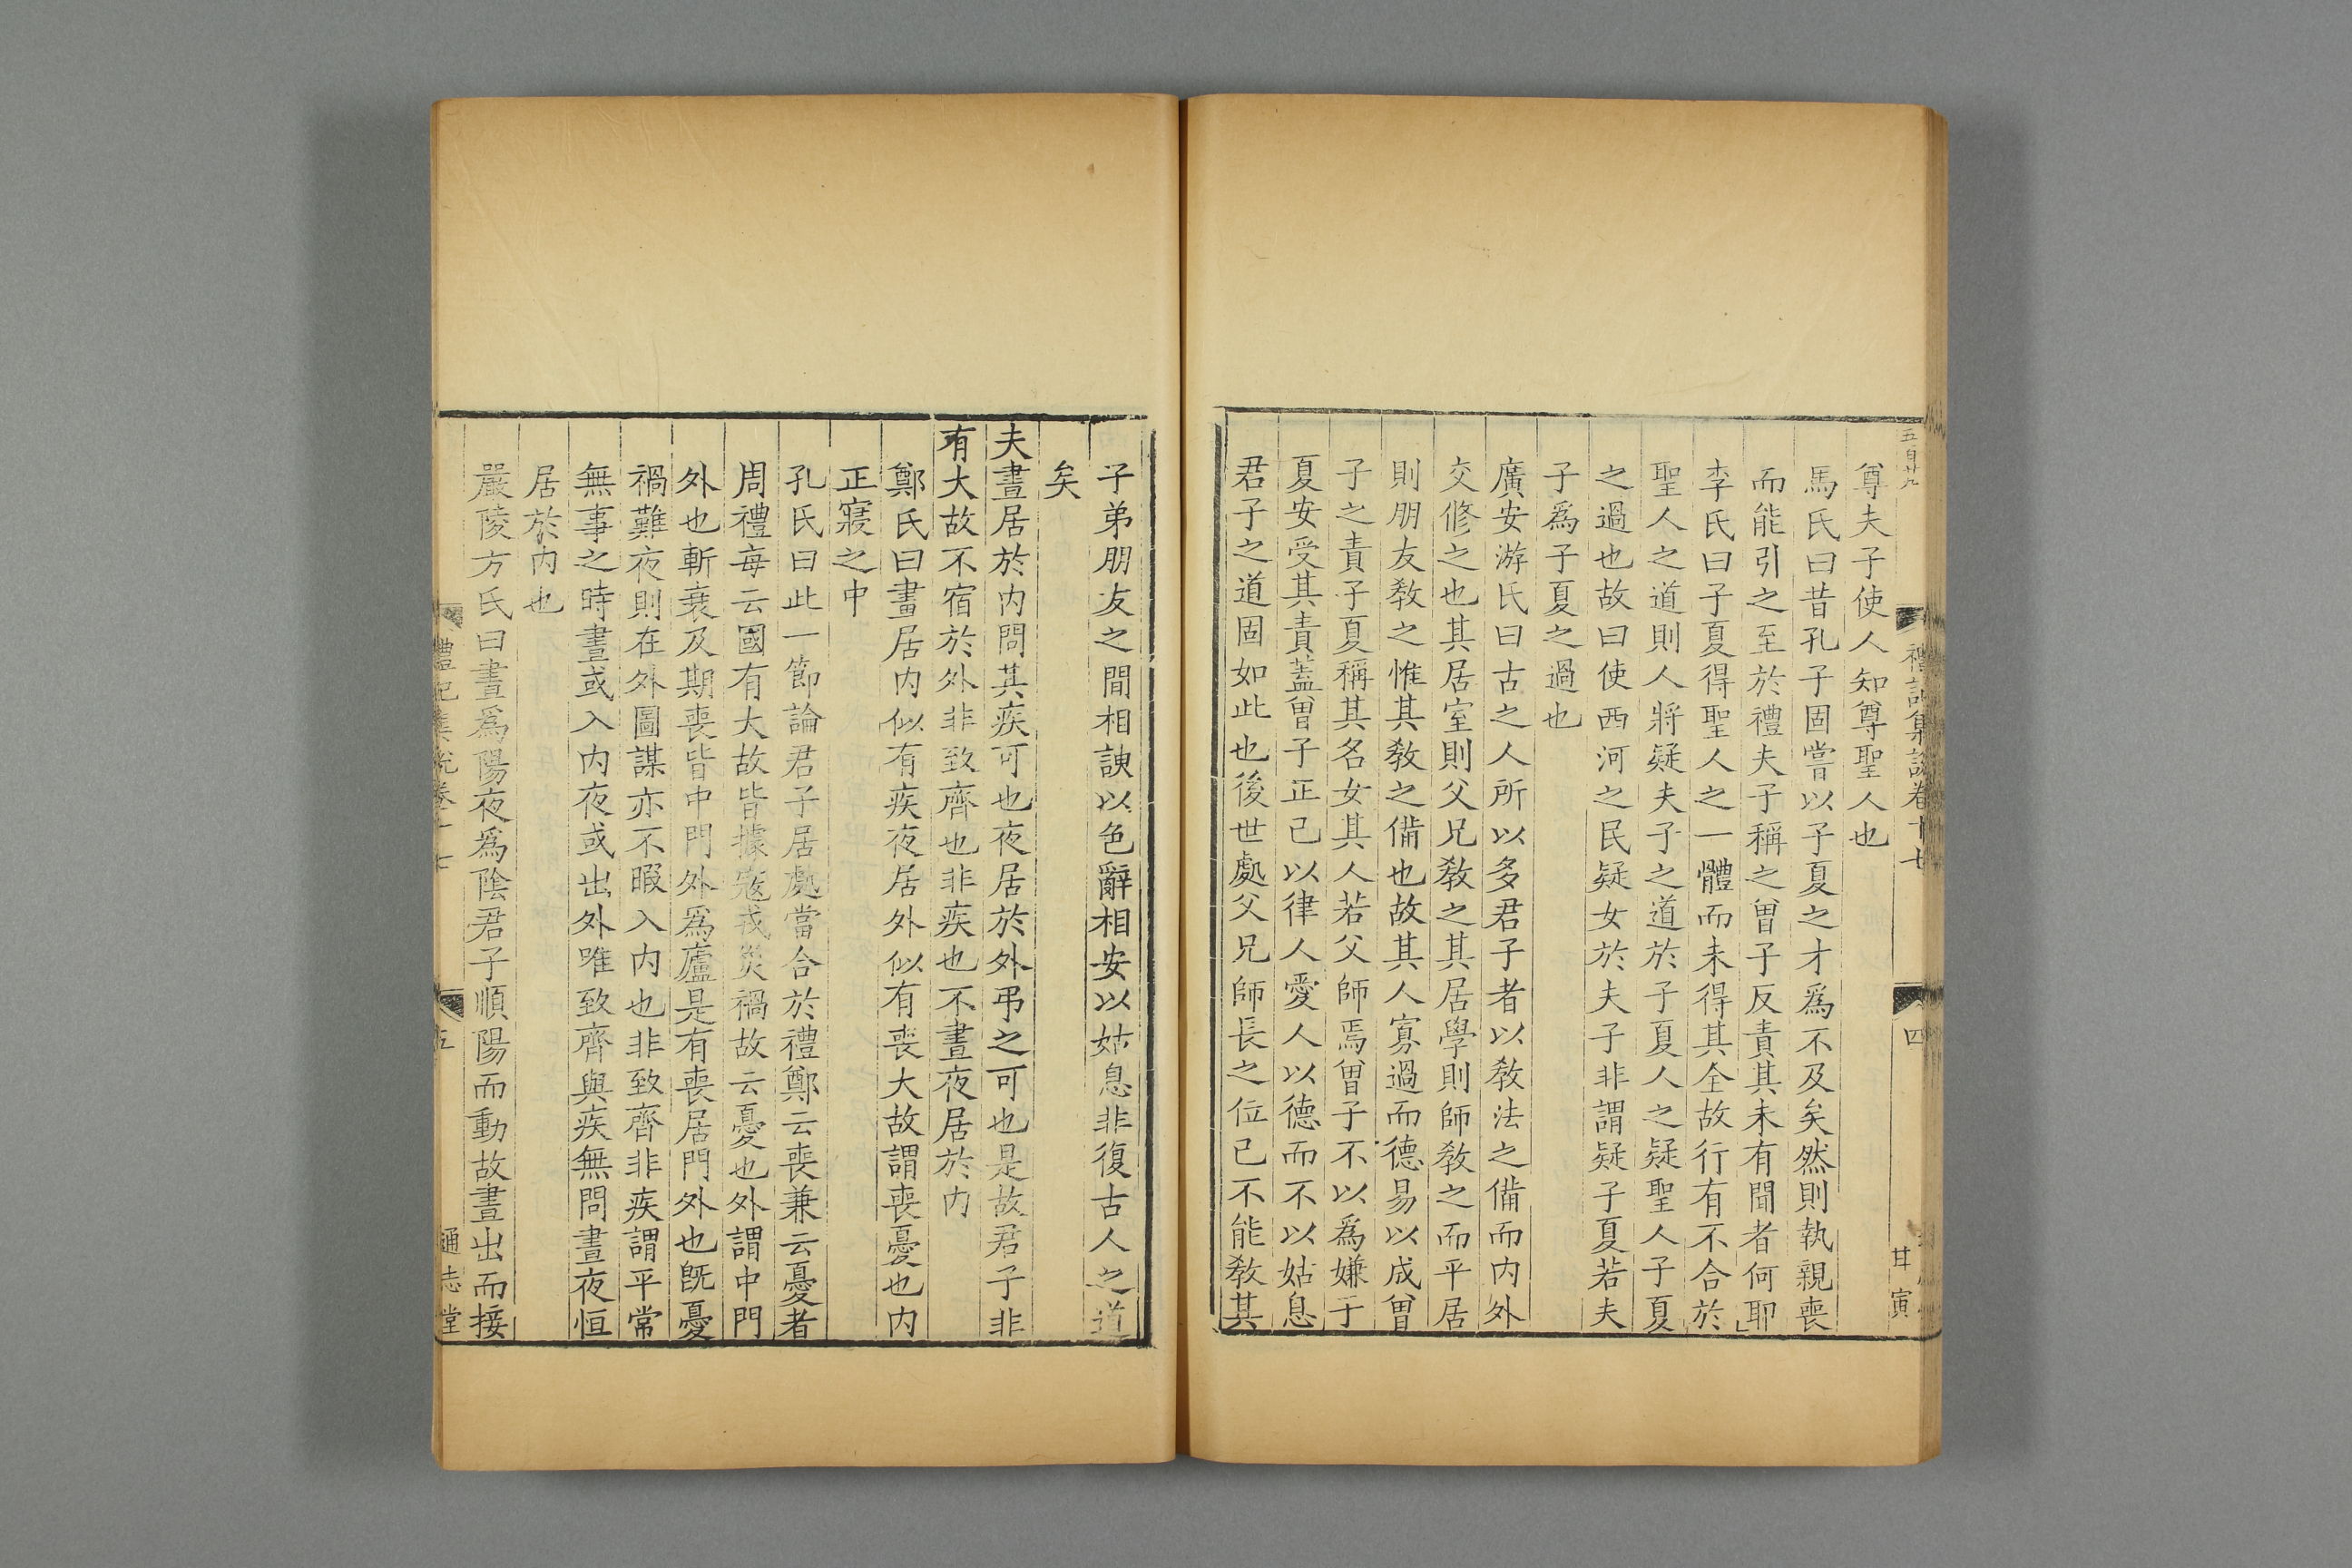 禮記集說卷十七
四
尊夫子使人知尊聖人也
馬氏曰昔孔子固嘗以子夏之才爲不及矣然則執親喪
而能引之至於禮夫子稱之曾子反責其未有聞者何耶
李氏曰子夏得聖人之一體而未得其全故行有不合於
聖人之道則人將疑夫子之道於子夏人之疑聖人子夏
之過也故曰使西河之民疑女於夫子非謂疑子夏若夫
子爲子夏之過也
廣安游氏曰古之人所以多君子者以敎法之備而内外
交修之也其居室則父兄敎之其居學則師敎之而平居
則朋友敎之惟其敎之備也故其人寡過而德易以成曾
子之責子夏稱其名女其人若父師焉曾子不以爲嫌子
夏安受其責蓋曾子正己以律人愛人以德而不以姑息
君子之道固如此也後世處父兄師長之位己不能敎其
子弟朋友之間相諛以色辭相安以姑息非復古人之道
矣
夫晝居於内問其疾可也夜居於外弔之可也是故君子非
有大故不宿於外非致齊也非疾也不晝夜居於内
鄭氏曰晝居内似有疾夜居外似有喪大故謂喪憂也内
正寢之中
孔氏曰此一節論君子居處當合於禮鄭云喪兼云憂者
周禮每云國有大故皆據寇戎災禍故云憂也外謂中門
外也斬衰及期喪皆中門外爲廬是有喪居門外也旣憂
禍難夜則在外圖謀亦不暇入内也非致齊非疾謂平常
無事之時晝或入内夜或出外唯致齊與疾無問晝夜恒
居於内也
嚴陵方氏曰晝爲陽夜爲陰君子順陽而動故晝出而接
禮記集說卷十七
五
通志堂